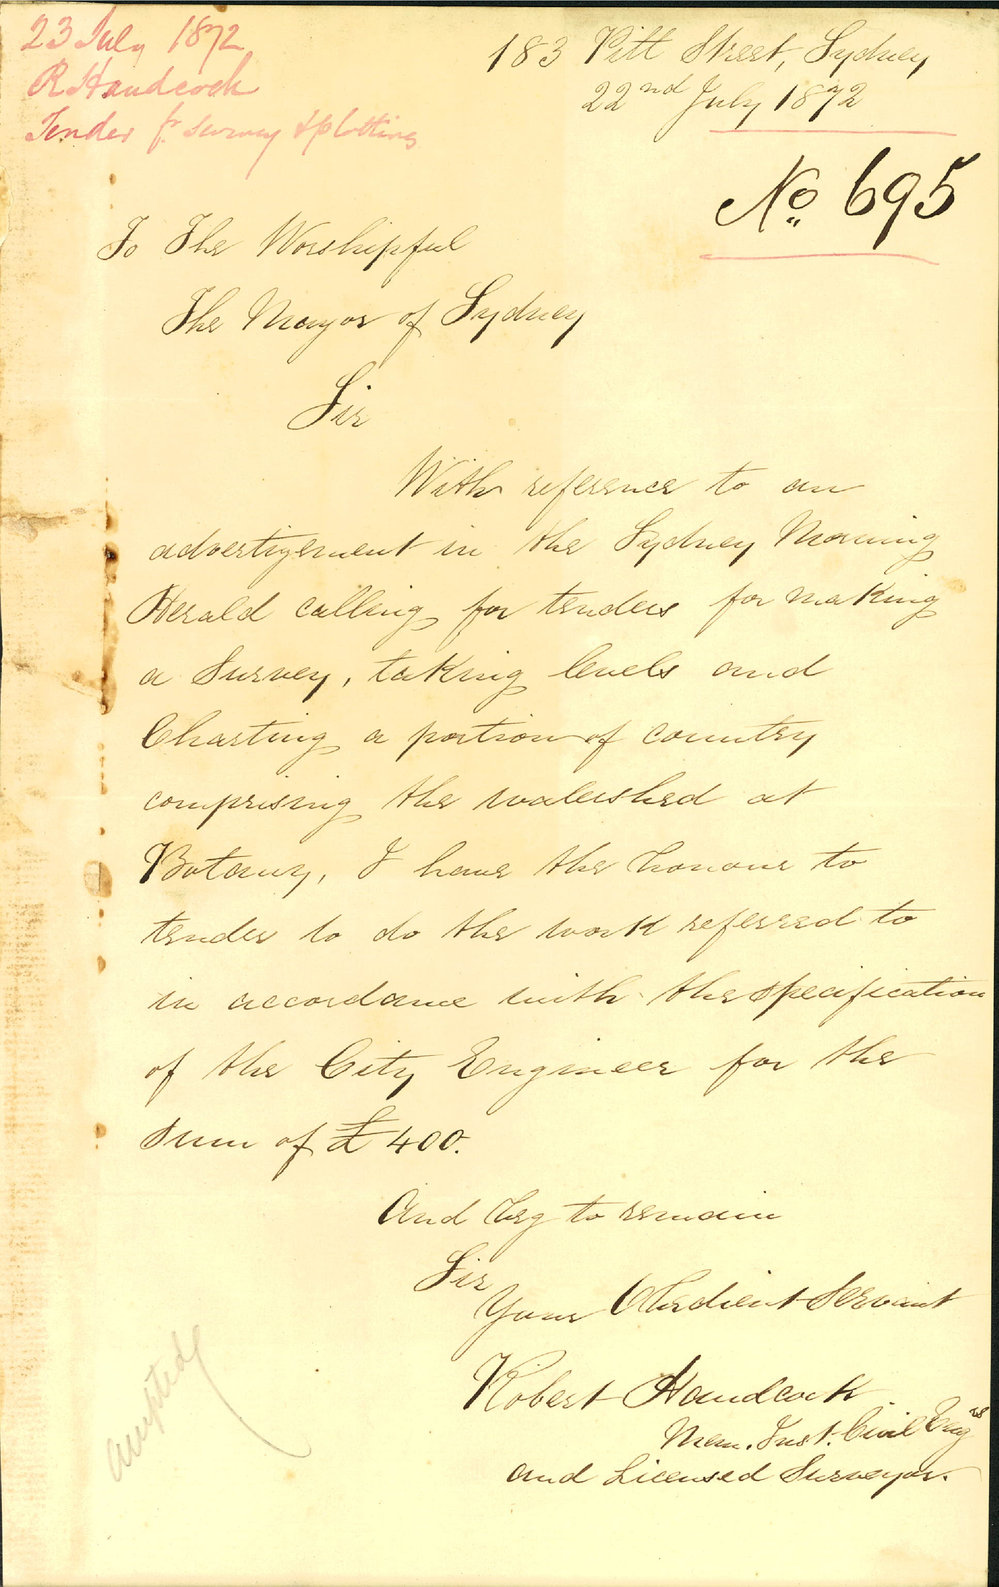 23 July 1872
R Handcock
Tender fr. survey & plotting
183 Pitt Street, Sydney
22nd July 1872
No 695
To The Worshipful
The Mayor of Sydney
Sir
With reference to an
advertizement in the Sydney Morning
Herald calling for tenders for making
a Survey, taking levels and
Charting a portion of country
comprising the watershed at
Botany, I have the honour to
tender to do the work referred to
in accordance with the specification
of the City Engineer for the
sum of £400.
And beg to remain
Sir
Your Obedient Servant
Robert Handcock
Mem. Inst. Civil Engrs
and Licensed Surveyor.
accepted